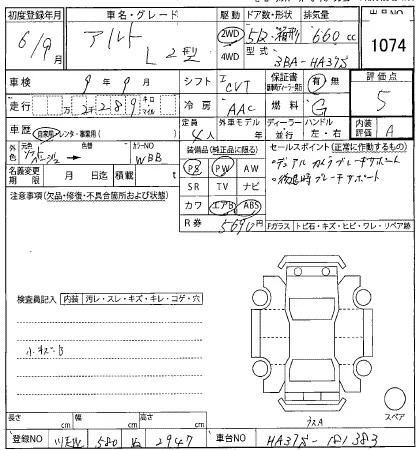 初度登録年月 車名・グレード 駆動 ドア数・形状 排気量 出品NO
6/9月 アルト L 2型 2WD 4WD 5D・箱形 660cc 1074
型式 3BA-HA37S
車検 9年9月 シフト I CVT 保証書 有・無 評価点 5
走行 万2千289 キロ マイル 冷房 AAC 燃料 G
車歴 自家用・レンタ・事業用( ) 定員 4人 外車モデル 年 ディーラー・並行 ハンドル 左・右 内装評価 A
外色 元色 色替 カラーNO WBB
装備品(純正品に限る) セールスポイント(正常に作動するもの)
名義変更 月 日迄 積載 t
PS PW AW
・デュアルカメラブレーキサポート
注意事項(欠品・修復・不具合箇所および状態)
SR TV ナビ
・後退時ブレーキサポート
カワ エアB ABS
R券 5690円 Fガラス・トビ石・キズ・ヒビ・ワレ・リペア跡
検査員記入 内装 汚レ・スレ・キズ・キレ・コゲ・穴
小キズB
スペア
ウスA
長さ cm 幅 cm 高さ cm
登録NO 580 2947 車台NO HA37S-181383